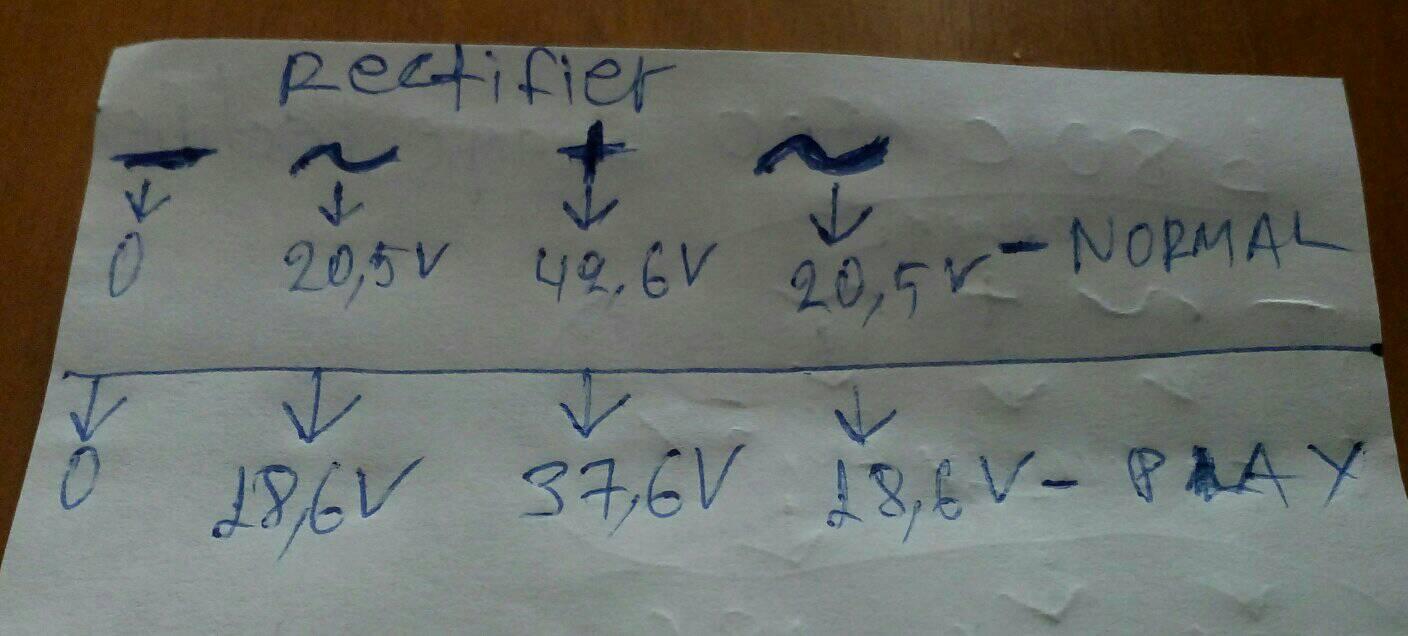 Rectifier
— ~ + ~
0 20,5V 42,6V 20,5V - NORMAL
0 18,6V 37,6V 18,6V - PLAY